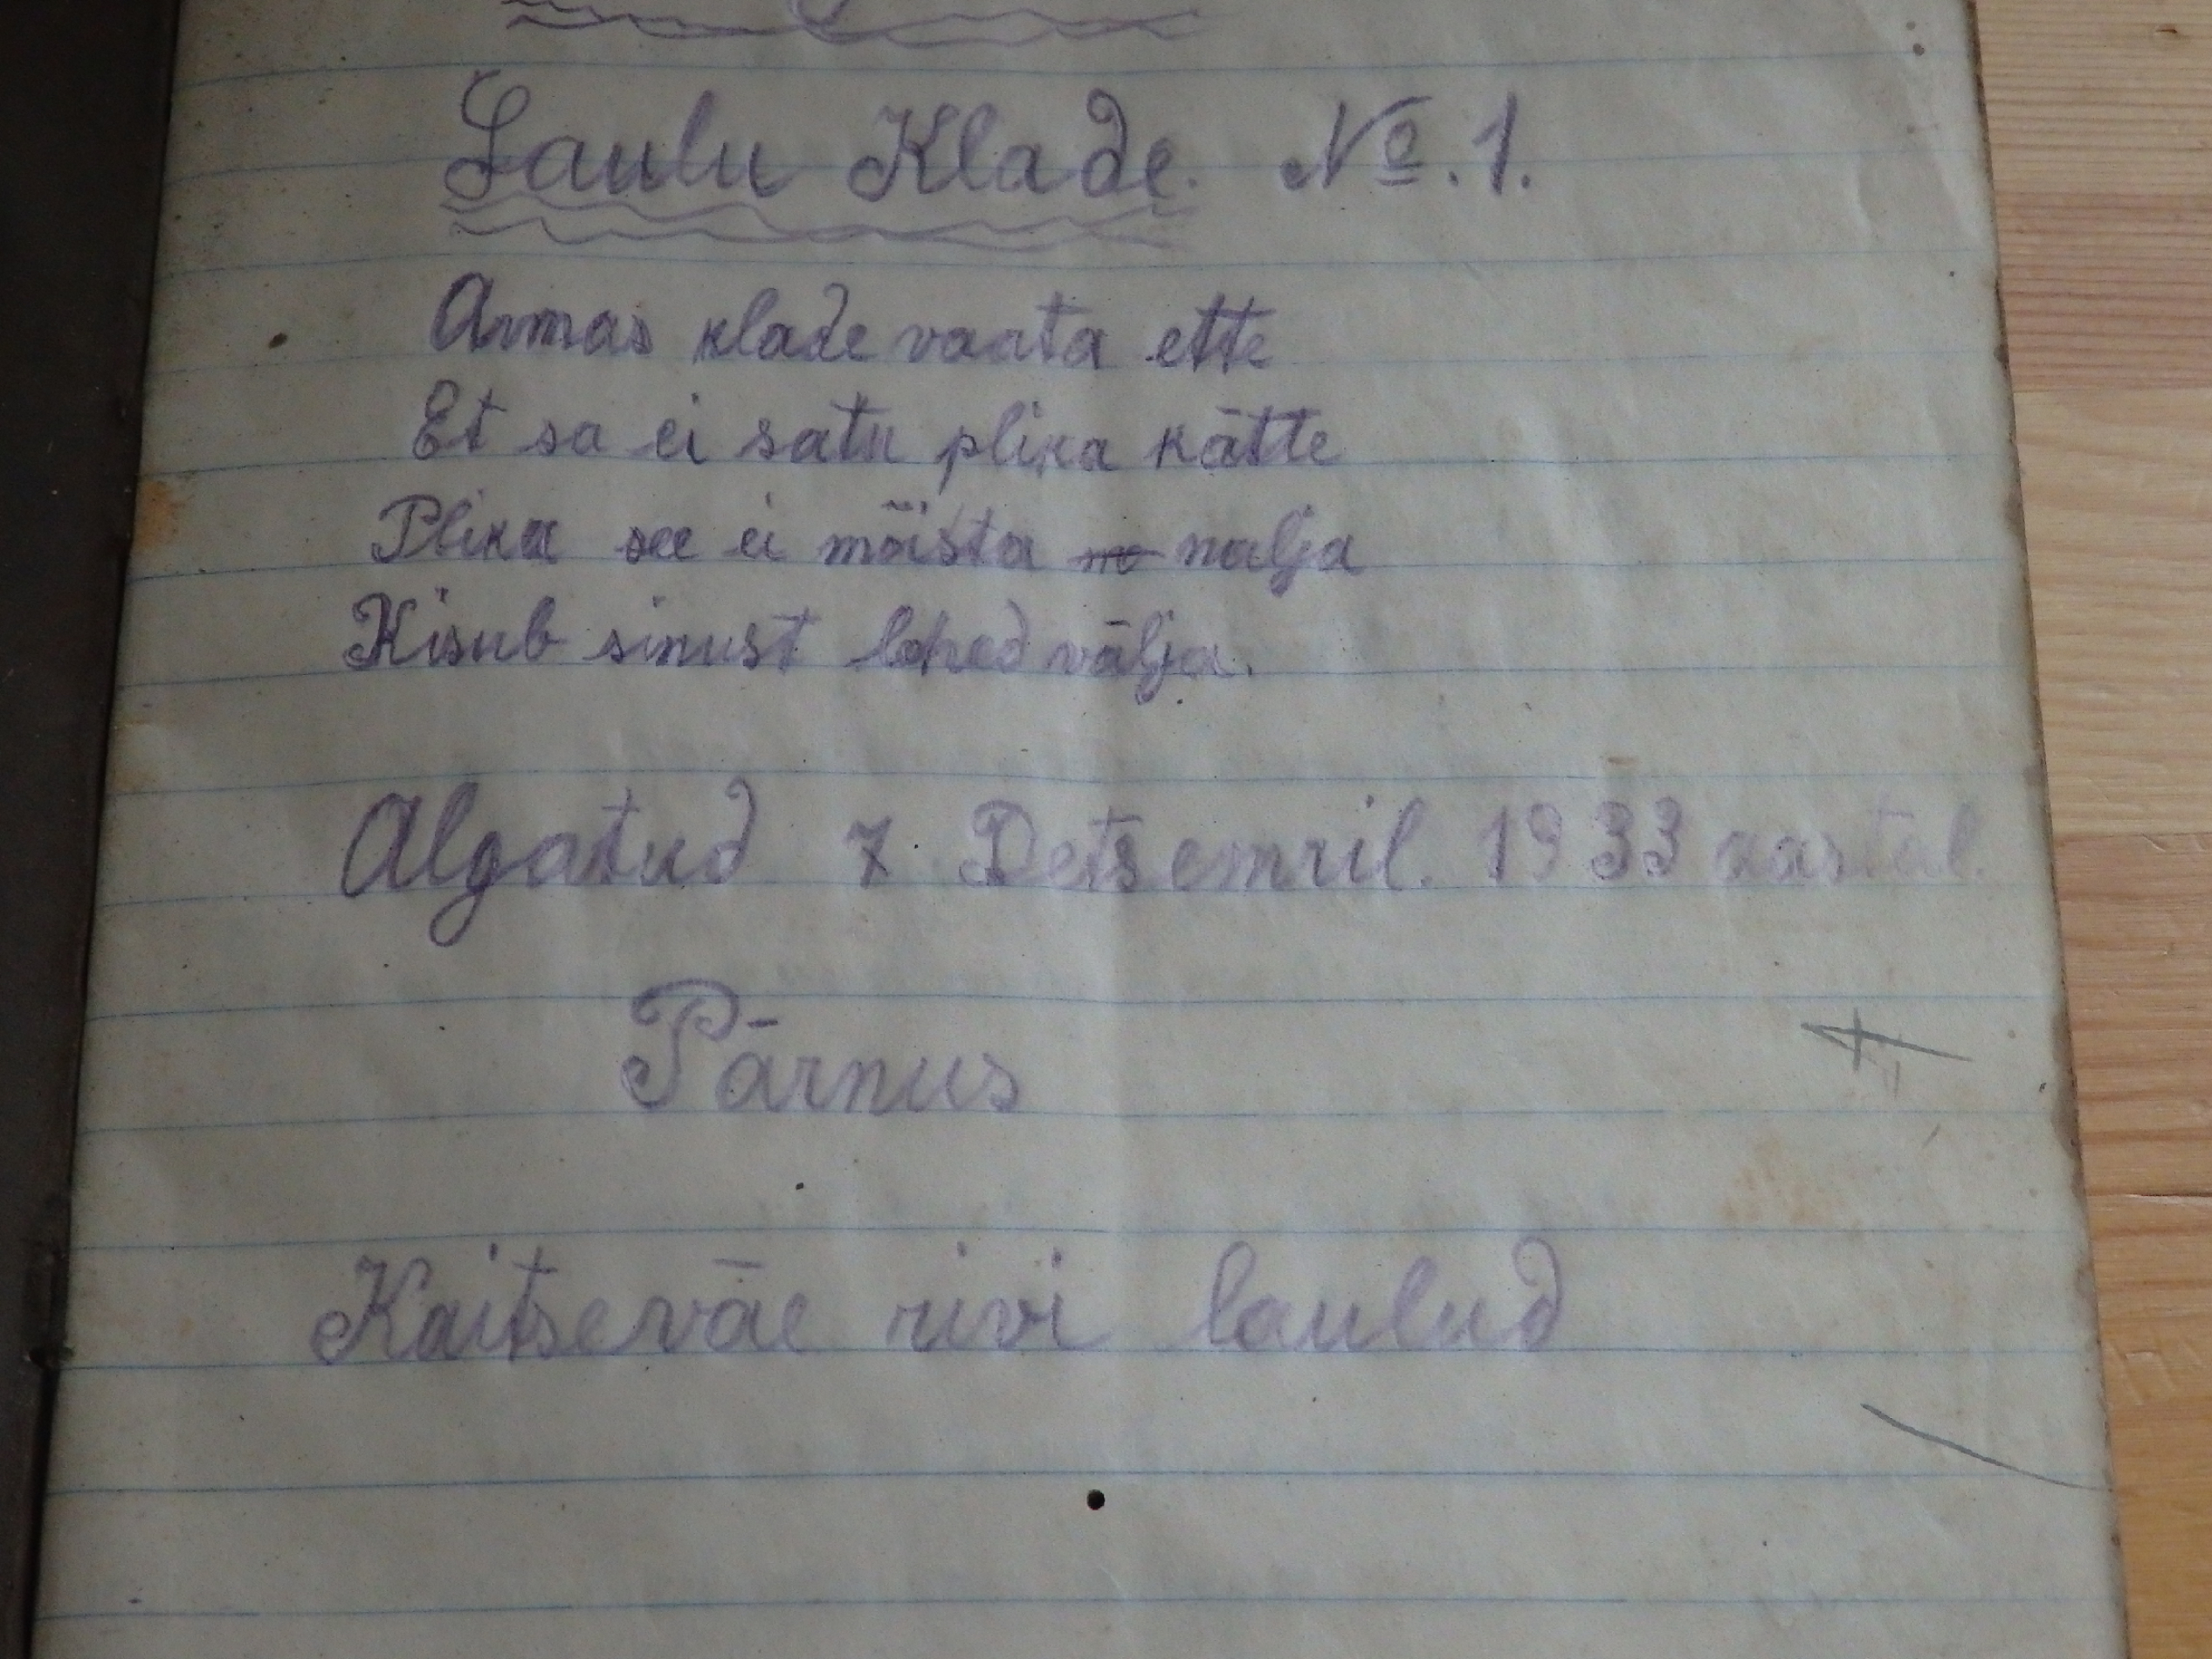 Laulu Klade. № 1.
Armas klade vaata ette
Et sa ei satu plika kätte
Plika see ei mõista nalja
Kisub sinust lehed välja.
Algatud 7. Detsemril. 1933 aastal.
Pärnus
Kaitseväe rivi laulud